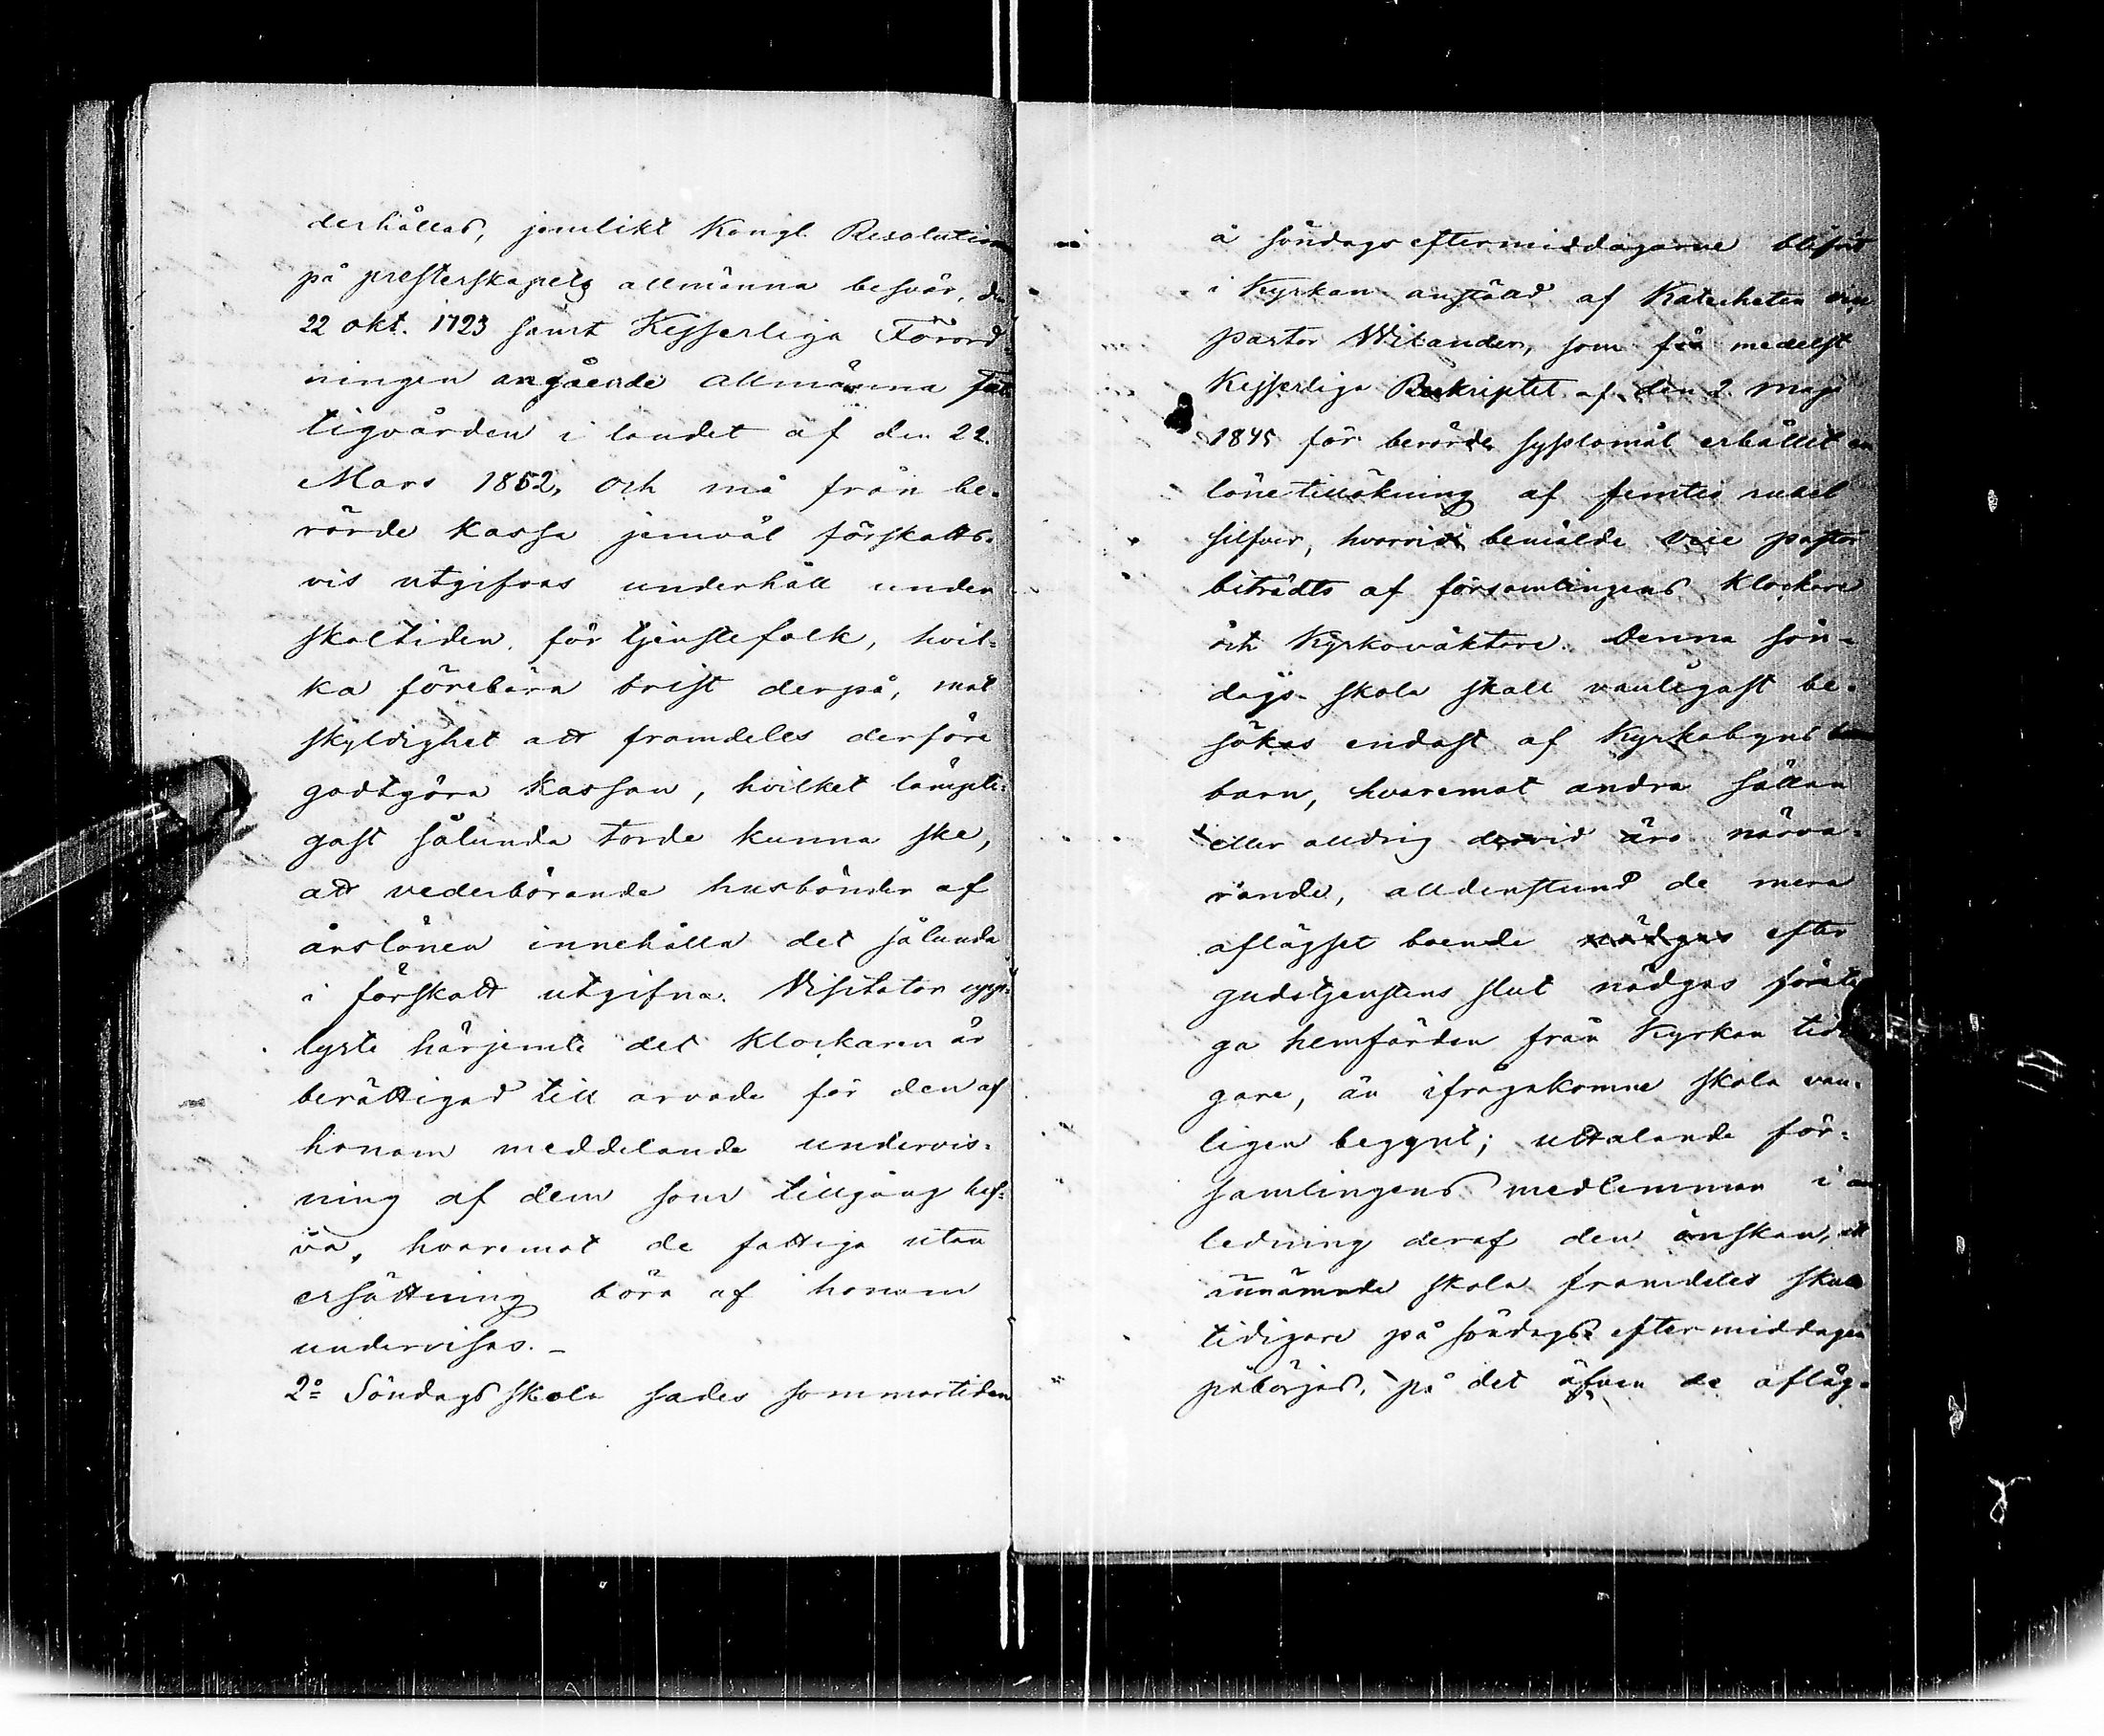 derhållas, jemlikt Kongl. Resolution
på presterskapets allmänna besvär, den
22 okt. 1723 samt Kejserliga Förord-
ningen angående allmänna fat-
tigvården i landet af den 22.
Mars 1852, och må från be-
rörde kassa jemväl förskotts-
vis utgifvas underhåll under
skoltiden för tjenstefolk, hvil-
ka förebära brist derpå, mot
skyldighet att framdeles derföre
godtgöra kassan, hvilket lämpli-
gast sålunda torde kunna ske,
att vederbörande husbönder af
årslönen innehålla det sålunda
i förskott utgifna. Visitator upp-
lyste härjemte det Klockaren är
berättigad till arvode för den af
honom meddelande undervis-
ning af dem som tillgång haf-
va, hvaremot de fattiga utan
ersättning böra af honom
undervisas. –
2º Söndags skola sades sommartiden
å söndags eftermiddagarne blifvit
i Kyrkan anställd af Katecheten vice
pastor Wikander, som medelst
Kejserliga Reskriptet af den 2 Maji
1845 för berörde sysslomål erhållit en
lönetillökning af femtio rubel
silfver, hvarvid bemälde vice pastor
biträdts af församlingens Klockare
och Kyrkoväktare. Denna sön-
dags skola skall vanligast be-
sökas endast af Kyrkobyns
barn, hvaremot andra sällan
eller aldrig dervid äro närva-
rande, alldenstund de mera
aflägset boende nödgas efter
gudstjenstens slut nödgas företa-
ga hemfärden från Kyrkan tidi-
gare, än ifrågakomne skola van-
ligen begynt; uttalande för-
samlingens medlemmar i an-
ledning deraf den önskan, att
skola framdeles skulle
tidigare på söndags eftermiddagen
påbörjas, på det äfven de afläg-